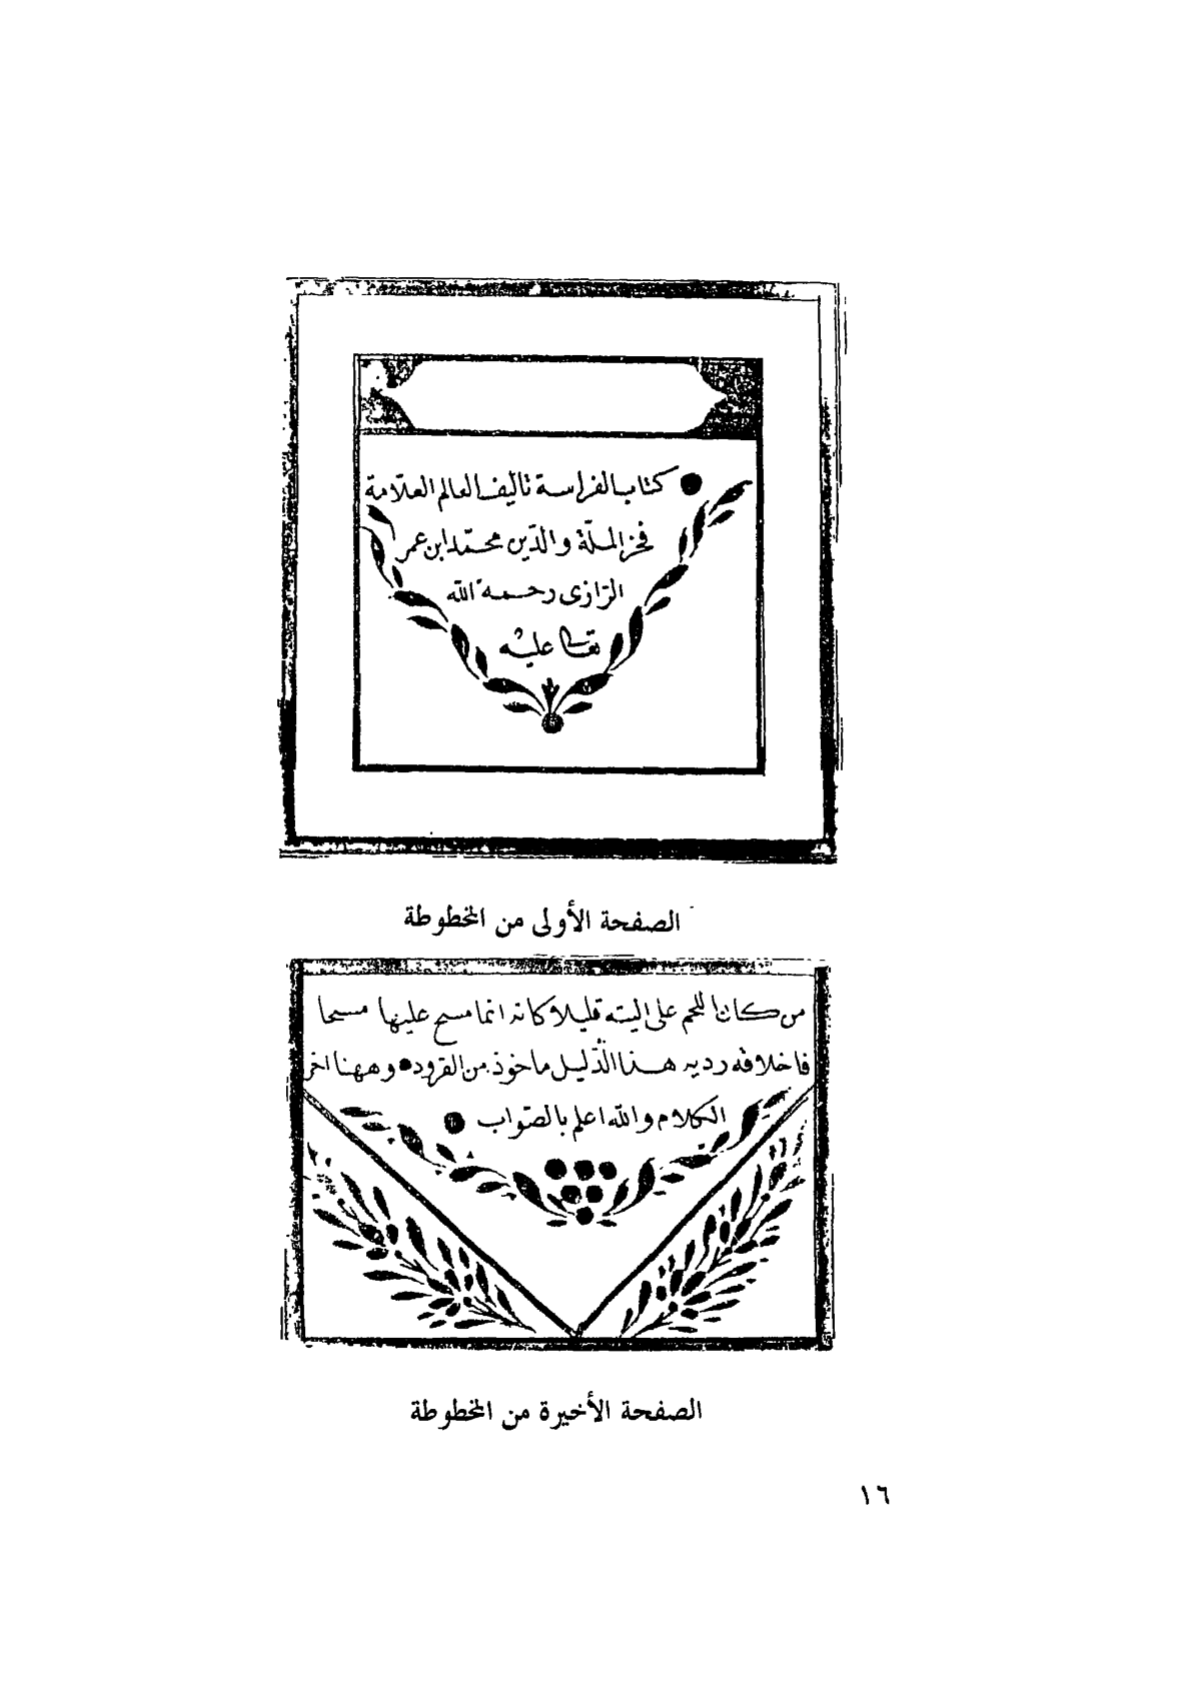 كتاب الفراسة تاليف العالم العلّامة
فخر الملّة والدّين محمّد ابن عمر
الرّازى رحمه الله
تعالى عليه
الصفحة الأولى من المخطوطة
من كان اللحم على اليته قليلا كانه انما مسح عليها مسحا
فاخلاقه رديه هذا الدّليل ماخوذ من القرود وههنا اخر
الكلام والله اعلم بالصّواب
الصفحة الأخيرة من المخطوطة
١٦